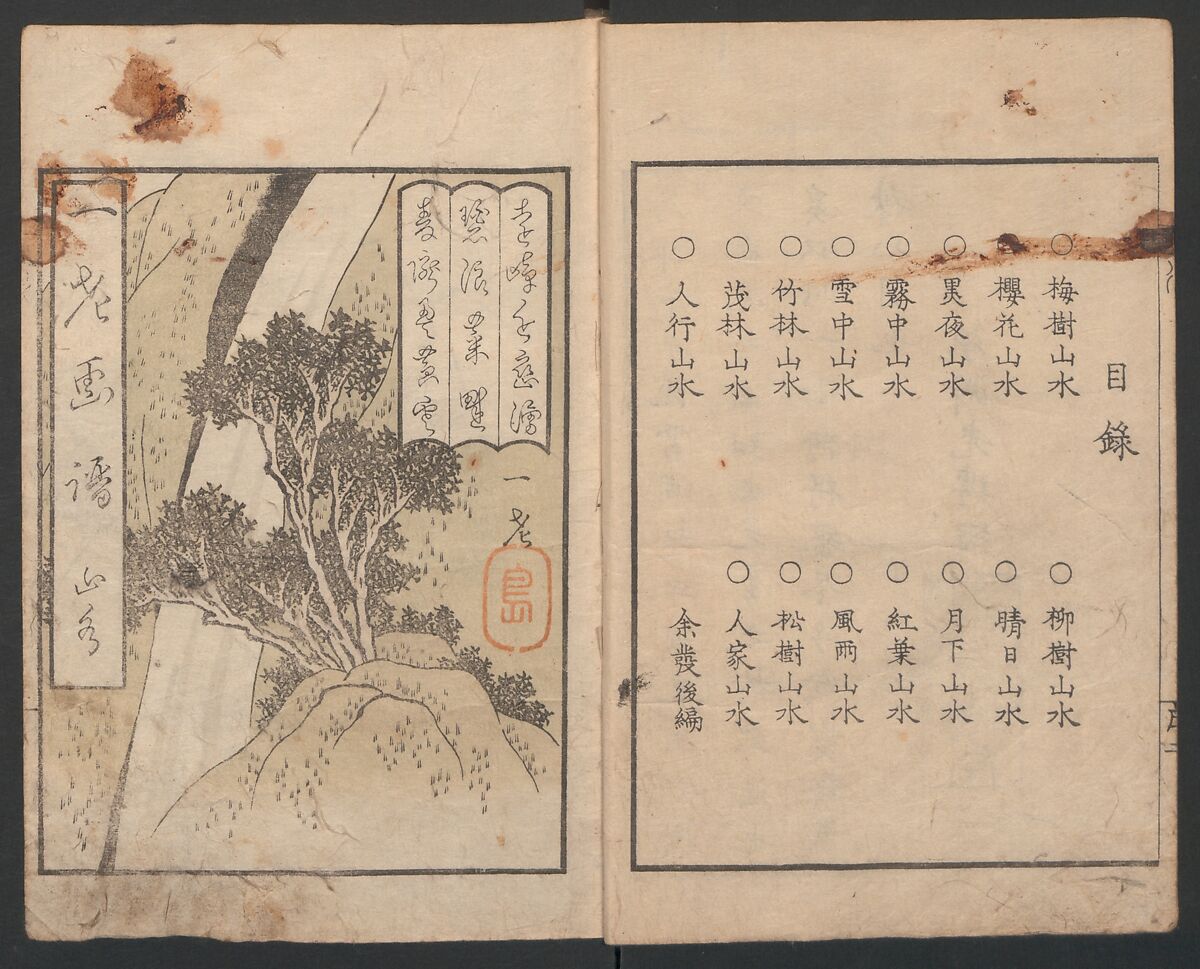 目錄
○梅樹山水 ○柳樹山水
○櫻花山水 ○晴日山水
○黒夜山水 ○月下山水
○霧中山水 ○紅葉山水
○雪中山水 ○風雨山水
○竹林山水 ○松樹山水
○茂林山水 ○人家山水
○人行山水 余發後編
一老
島
一老画譜 山水